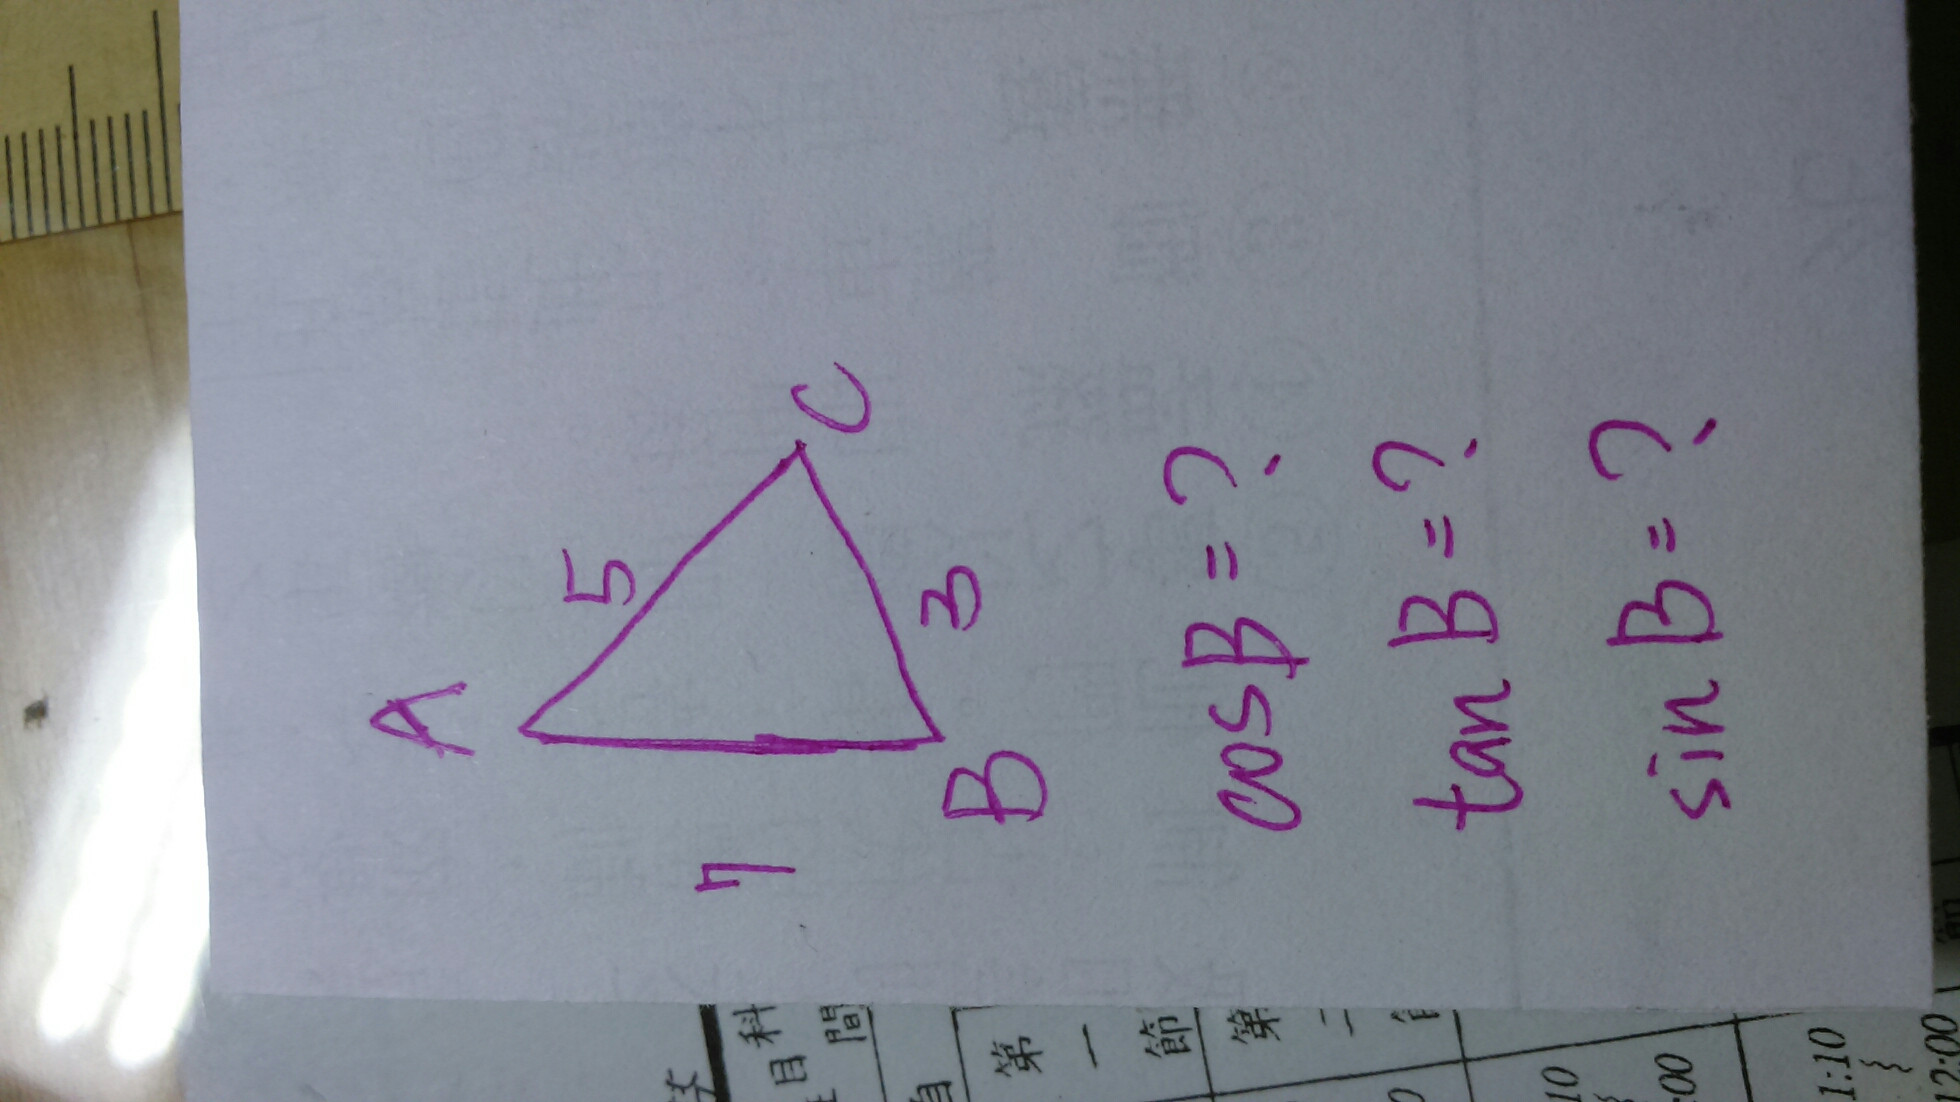 A
5
C
7
3
B
cosB=?
tan B=?
sin B=?
科
目
間
自
第一節
第二
10
00
11:10
12:00